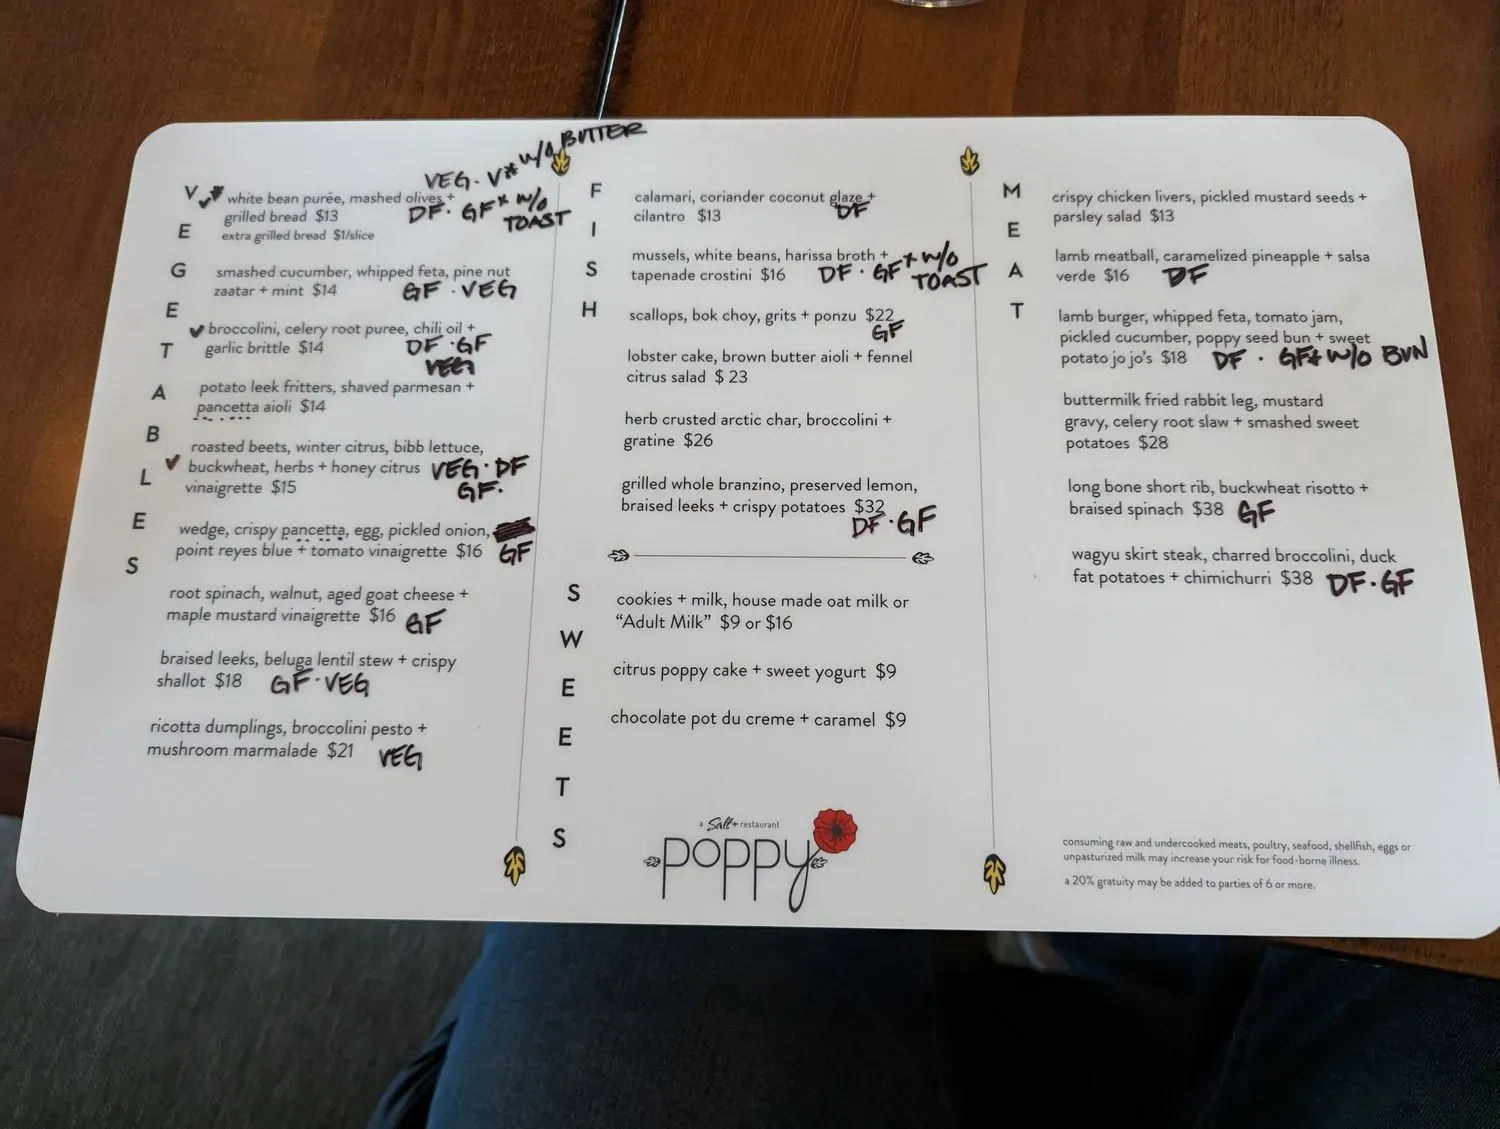 VEG. V* W/O BUTTER
VEGETABLES
white bean purée, mashed olives +
grilled bread $13
extra grilled bread $1/slice
DF. GF* W/O
TOAST
smashed cucumber, whipped feta, pine nut
zaatar + mint $14
GF . VEG
broccolini, celery root puree, chili oil +
garlic brittle $14
DF . GF
VEG
potato leek fritters, shaved parmesan +
pancetta aioli $14
roasted beets, winter citrus, bibb lettuce,
buckwheat, herbs + honey citrus VEG . DF
vinaigrette $15
GF.
wedge, crispy pancetta, egg, pickled onion,
point reyes blue + tomato vinaigrette $16
GF
root spinach, walnut, aged goat cheese +
maple mustard vinaigrette $16 GF
braised leeks, beluga lentil stew + crispy
shallot $18 GF . VEG
ricotta dumplings, broccolini pesto +
mushroom marmalade $21 VEG
FISH
calamari, coriander coconut glaze +
cilantro $13
DF
mussels, white beans, harissa broth +
tapenade crostini $16 DF . GF * W/O
TOAST
scallops, bok choy, grits + ponzu $22
GF
lobster cake, brown butter aioli + fennel
citrus salad $ 23
herb crusted arctic char, broccolini +
gratine $26
grilled whole branzino, preserved lemon,
braised leeks + crispy potatoes $32
DF . GF
SWEETS
cookies + milk, house made oat milk or
“Adult Milk” $9 or $16
citrus poppy cake + sweet yogurt $9
chocolate pot du creme + caramel $9
a Salt+ restaurant
poppy
MEAT
crispy chicken livers, pickled mustard seeds +
parsley salad $13
lamb meatball, caramelized pineapple + salsa
verde $16 DF
lamb burger, whipped feta, tomato jam,
pickled cucumber, poppy seed bun + sweet
potato jo jo's $18 DF . GF* W/O BUN
buttermilk fried rabbit leg, mustard
gravy, celery root slaw + smashed sweet
potatoes $28
long bone short rib, buckwheat risotto +
braised spinach $38 GF
wagyu skirt steak, charred broccolini, duck
fat potatoes + chimichurri $38 DF . GF
consuming raw and undercooked meats, poultry, seafood, shellfish, eggs or
unpasturized milk may increase your risk for food-borne illness.
a 20% gratuity may be added to parties of 6 or more.